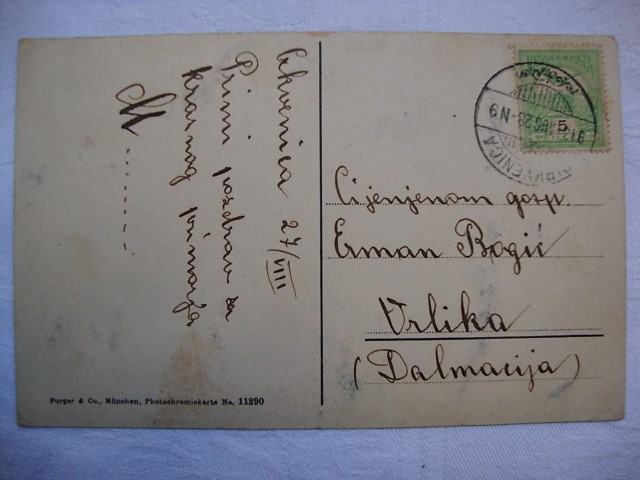 Crkvenica 27/VIII
Primi pozdrav sa
krasnog primorja
M......
Cijenjenom gosp.
Erman Bogić
Vrlika
(Dalmacija)
Purger & Co., München, Photochromiekarte No. 11290
5
CIRKVENICA